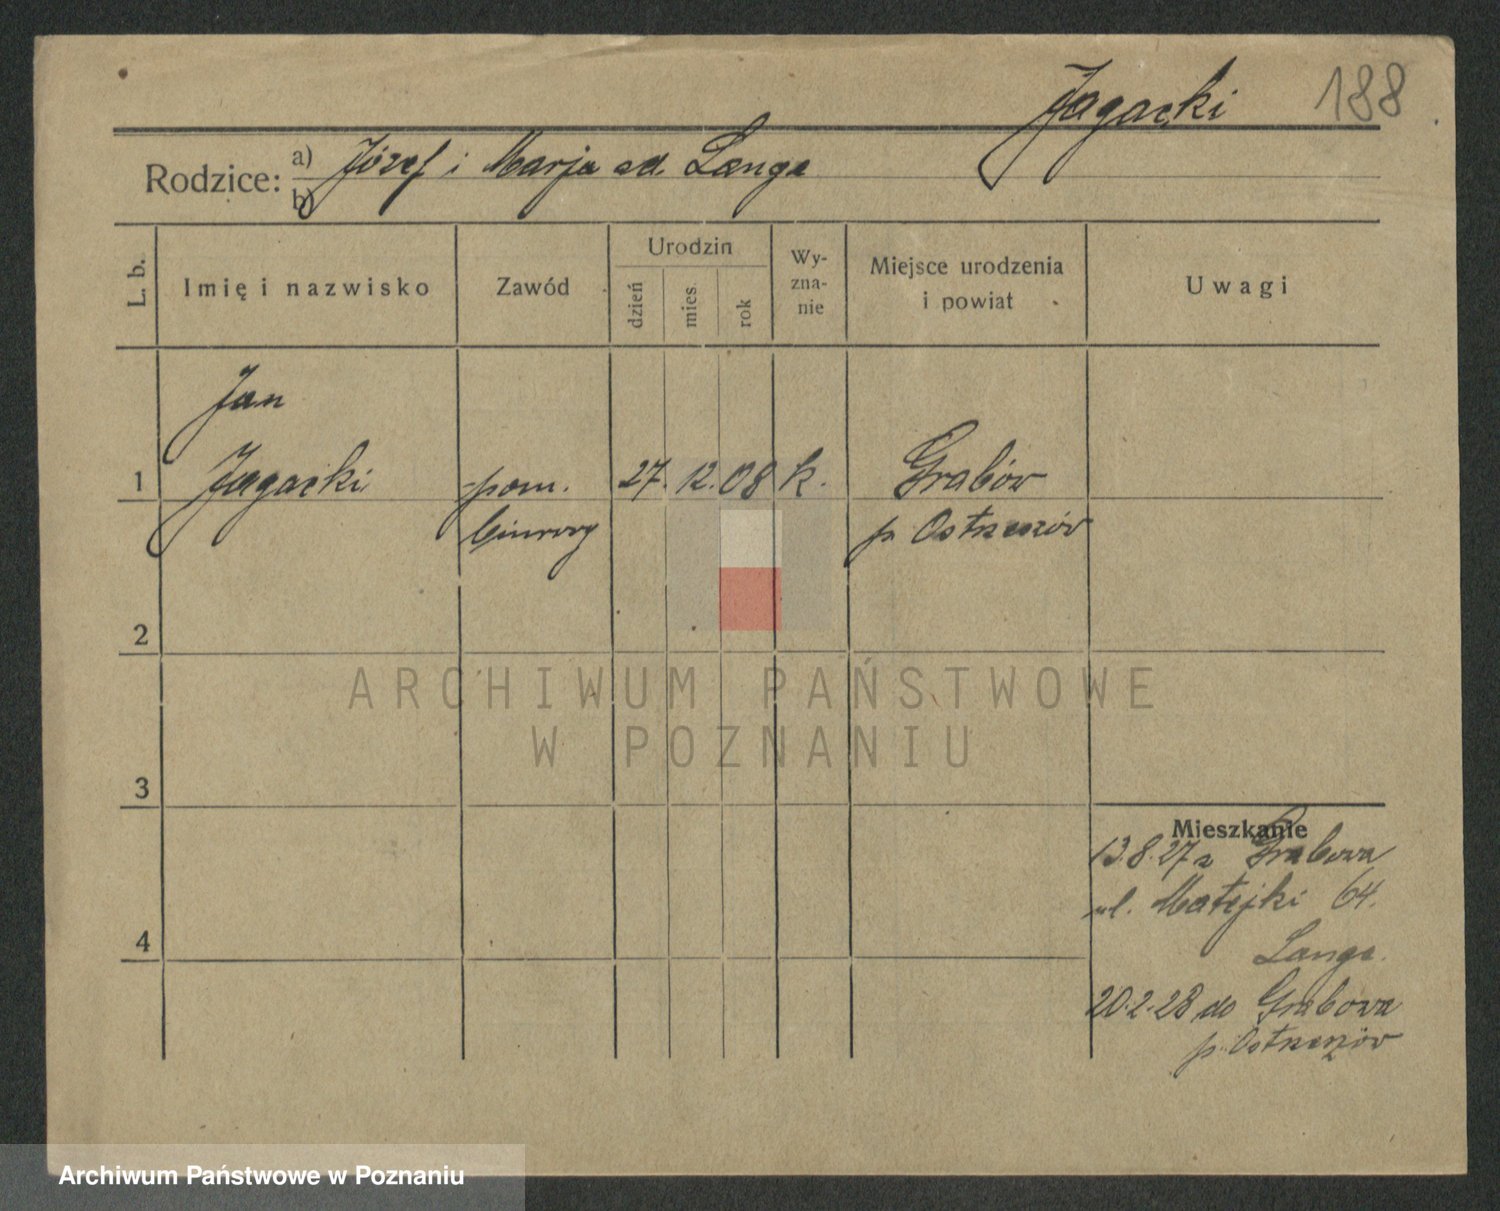 Jagacki 188
Rodzice: a) Józef i Marja od. Lange
b)
L. b. Imię i nazwisko Zawód Urodzin dzień mies. rok Wy-zna-nie Miejsce urodzenia i powiat Uwagi
Jan
1 Jagacki pom. 27. 12. 08 k. Grabów
biurowy p. Ostrzeszów
2
3
4
Mieszkanie
13.8.27 z Grabowa
ul. Matejki 64.
Lange.
20.2.28 do Grabowa
p. Ostrzeszów
ARCHIWUM PAŃSTWOWE
W POZNANIU
Archiwum Państwowe w Poznaniu